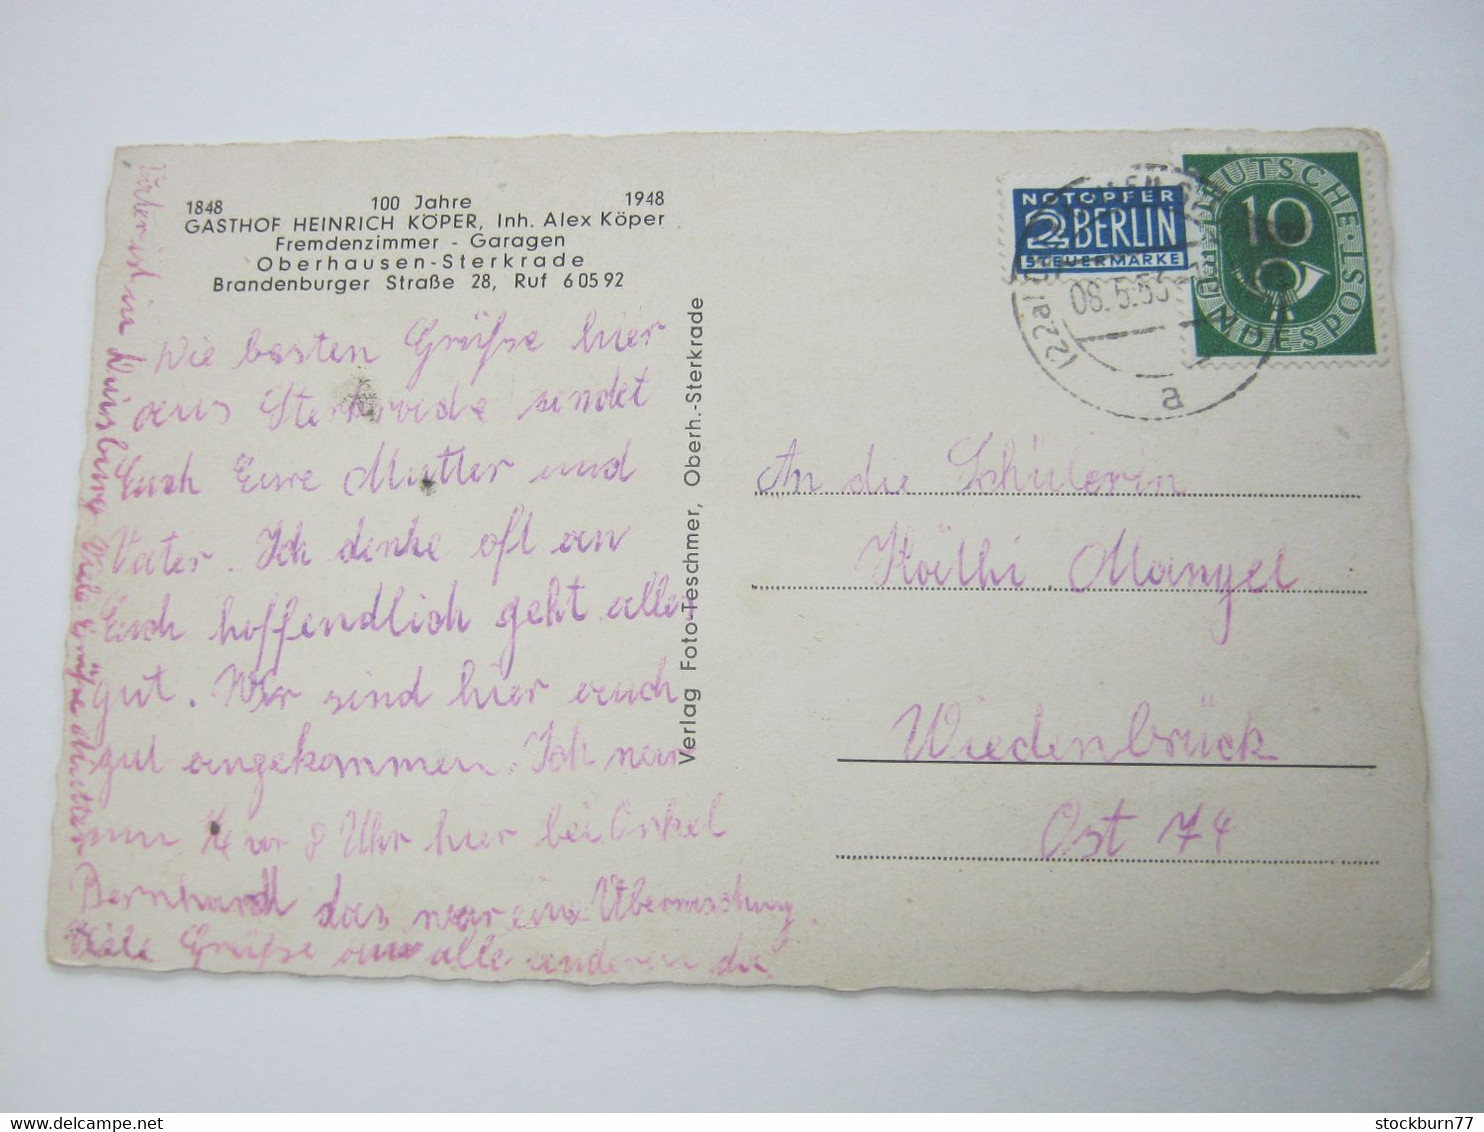 1848 100 Jahre 1948
GASTHOF HEINRICH KÖPER, Inh. Alex Köper
Fremdenzimmer - Garagen
Oberhausen-Sterkrade
Brandenburger Straße 28, Ruf 6 05 92
Die besten Grüße hier
aus Sterkrade sendet
Euch Eure Mutter und
Vater. Ich denke oft an
Euch hoffendlich geht alles
gut. Wir sind hier auch
gut angekommen. Ich war
um 1/4 vor 8 Uhr hier bei Onkel
Bernhardt das war eine Überraschung.
Viele Grüße an alle anderen da
Vater ist in Duisburg Viele Grüße Mutter
Verlag Foto-Teschmer, Oberh.-Sterkrade
NOTOPFER
2 BERLIN
STEUERMARKE
DEUTSCHE BUNDESPOST
10
(22a)
08.5.53
a
An die Schülerin
Käthi Mangel
Wiedenbrück
Ost 74
stockburn77